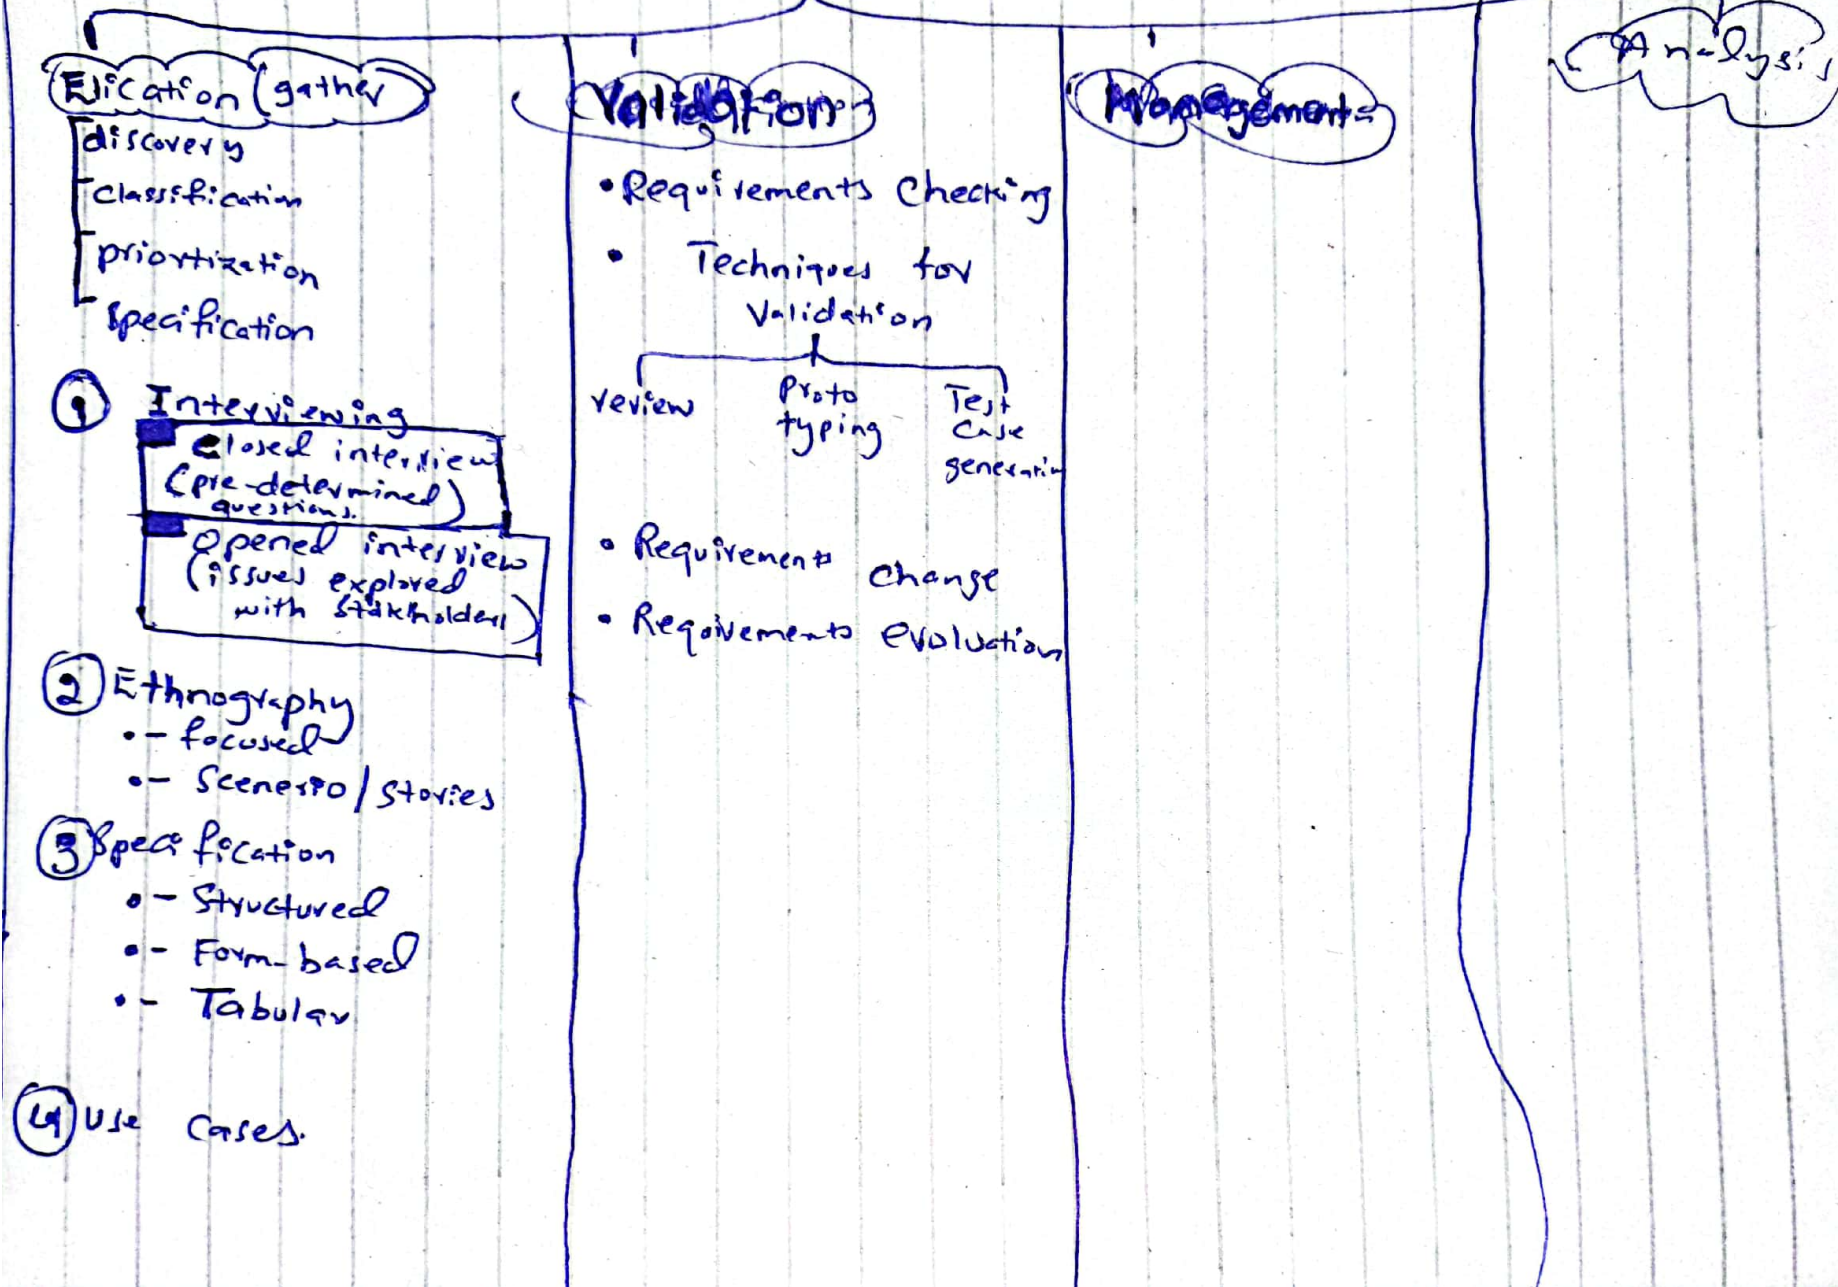 Elication (gather)
discovery
classification
priortization
specification
1 Interviewing
closed interview
(pre-determined
questions.)
opened interview
(issues explored
with stakeholders)
2 Ethnography
•- focused
•- Scenerio/stories
3 Specification
•- Structured
•- Form-based
•- Tabular
4 Use cases.
Validation
• Requirements checking
• Techniques for
Validation
review
Proto
typing
Test
case
generation
• Requirements change
• Requirements evoluation
Management
Analysis